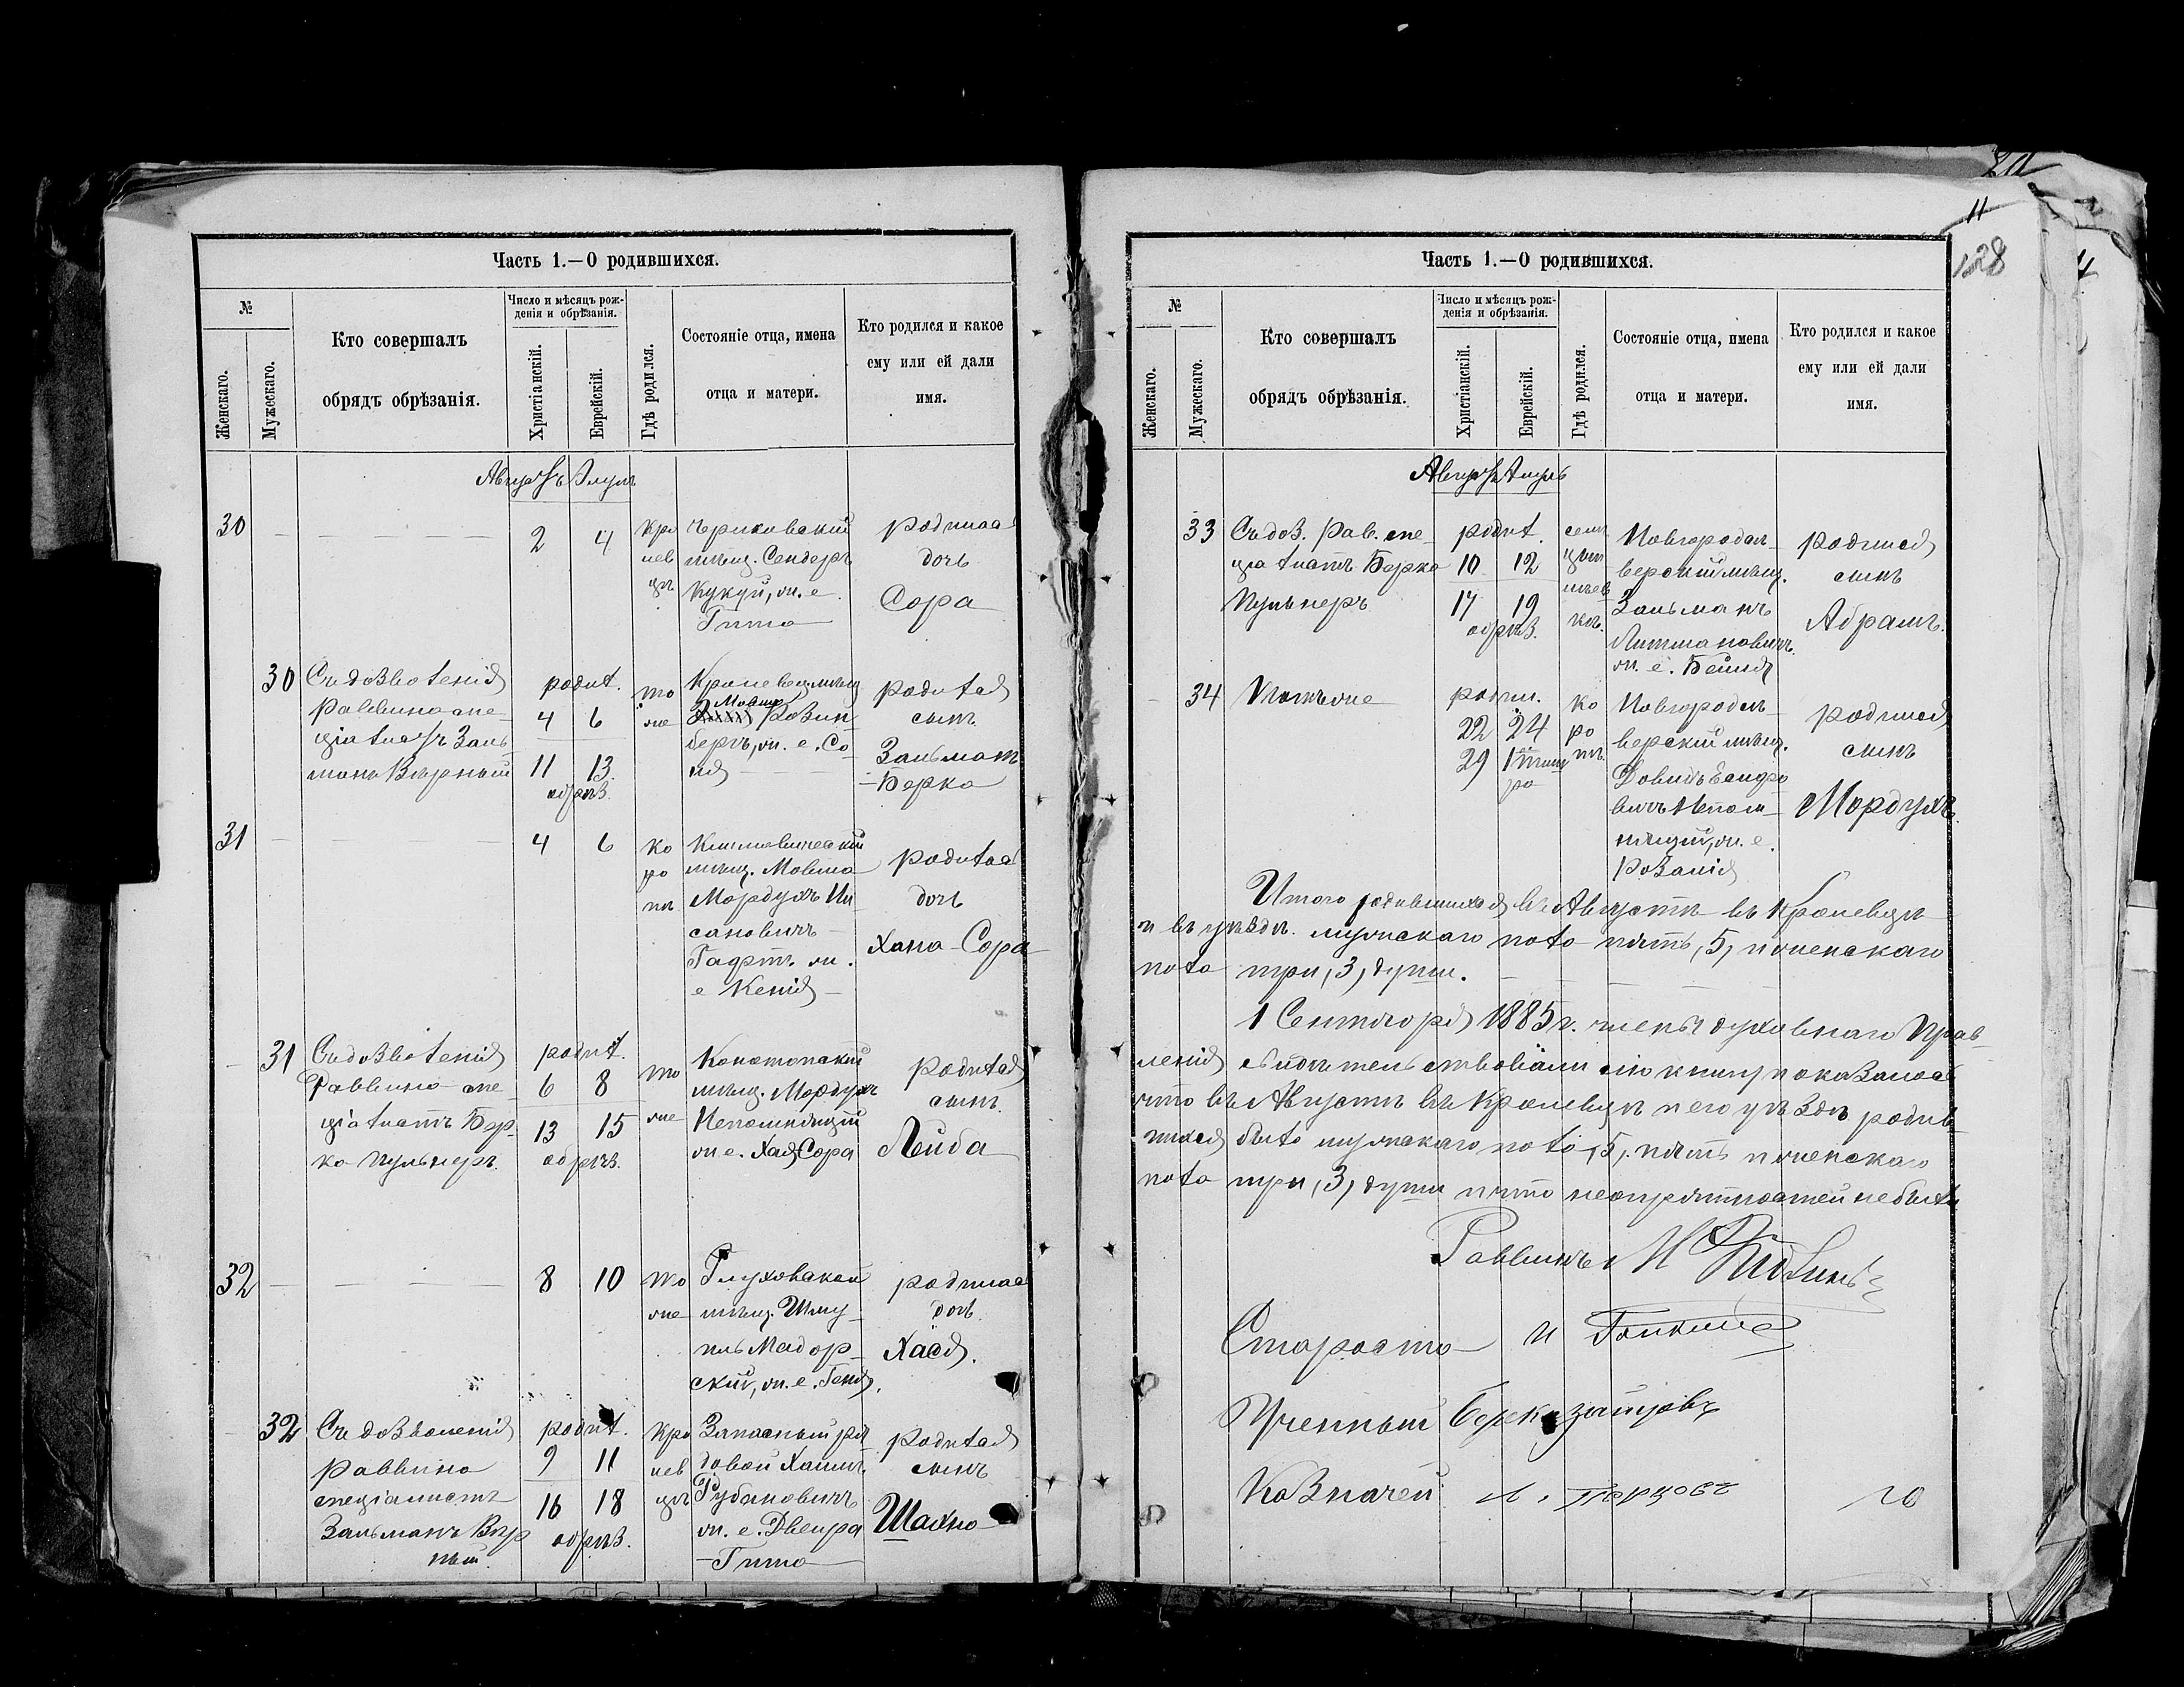 Часть 1.—О родившихся.
№
Женскаго.
Мужескаго.
Кто совершалъ
обрядъ обрѣзанія.
Число и мѣсяцъ рож-
денія и обрѣзанія.
Христіанскій.
Еврейскій.
Гдѣ родился.
Состояніе отца, имена
отца и матери.
Кто родился и какое
ему или ей дали
имя.
Августъ Элулъ
30
2 4
Кро
лев
цѣ
Чериковскій
мѣщ. Сендеръ
Кукуй, ж. е.
Гита
родилась
дочь
Сора
30
Съ дозволенія
раввина спе-
ціалистъ Заль-
манъ Вѣрный
родил.
4 6
11 13
обрѣз.
то
же
Кролевец. мѣщ
Мовша Розин-
бергъ, ж. е. Со
ня
родился
сынъ
Зальманъ
-Берка
31
4 6
ко
ро
пѣ
Климовическій
мѣщ. Мовша
Мордухъ
сановичъ
ж.
е Кенія
родилась
дочь
Хана-Сора
31
Съ дозволенія
Раввина спе-
ціалистъ Бер-
ка Пульнеръ.
родил.
6 8
13 15
обрѣз.
то
же
Конотопскій
мѣщ. Мордухъ
Непомнящій
ж е. Хая Сора
родился
сынъ.
Лейба
32
8 10
то
же
Глуховской
мѣщ. Шму-
иль Мадор-
скій, ж. е. Геня.
родилась
дочь.
Хася.
32
Съ дозволенія
раввина
спеціалистъ
Зальманъ Вѣр
ный.
родил.
9 11
16 18
обрѣз.
Кро
лев
цѣ
Запасный ря
довой Хаимъ
Рубиновичъ
ж. е. Двейра
-Гита
родился
сынъ
Шахно
11
128
Часть 1.—О родившихся.
№
Женскаго.
Мужескаго.
Кто совершалъ
обрядъ обрѣзанія.
Число и мѣсяцъ рож-
денія и обрѣзанія.
Христіанскій.
Еврейскій.
Гдѣ родился.
Состояніе отца, имена
отца и матери.
Кто родился и какое
ему или ей дали
имя.
Августъ Элулъ
33
Съ доз. Рав. спе-
ціалистъ Берка
Пульнеръ
родил.
10 12
17 19
обрѣз.
Новгородсѣ-
верскій мѣщ.
Зальманъ
Литмановичъ.
ж. е. Бейля
родился
сынъ
Абрамъ.
34
Тотъ же
родил.
22 24
29 1 тиш
ра
ко
ро
пѣ.
Новгородсѣ-
верскій мѣщ.
Довидъ
вичъ Непом-
нящій, ж. е.
Розалія
родился
сынъ
Мордухъ.
Итого родившихся въ Августѣ въ Кролевцѣ
и въ уѣздѣ мужскаго пола пять, 5, и женскаго
пола три, 3, души.
1 Сентября 1885 г. члены духовнаго Прав-
ленія свидѣтельствовали сію книгу и оказалось
что въ Августѣ въ Кролевцѣ и его уѣздѣ родив-
шихся было мужскаго пола, 5, пять и женскаго
пола три, 3, души и что неопрятностей не было
Раввинъ М
Староста И
Ученный Берка
Казначей Л.